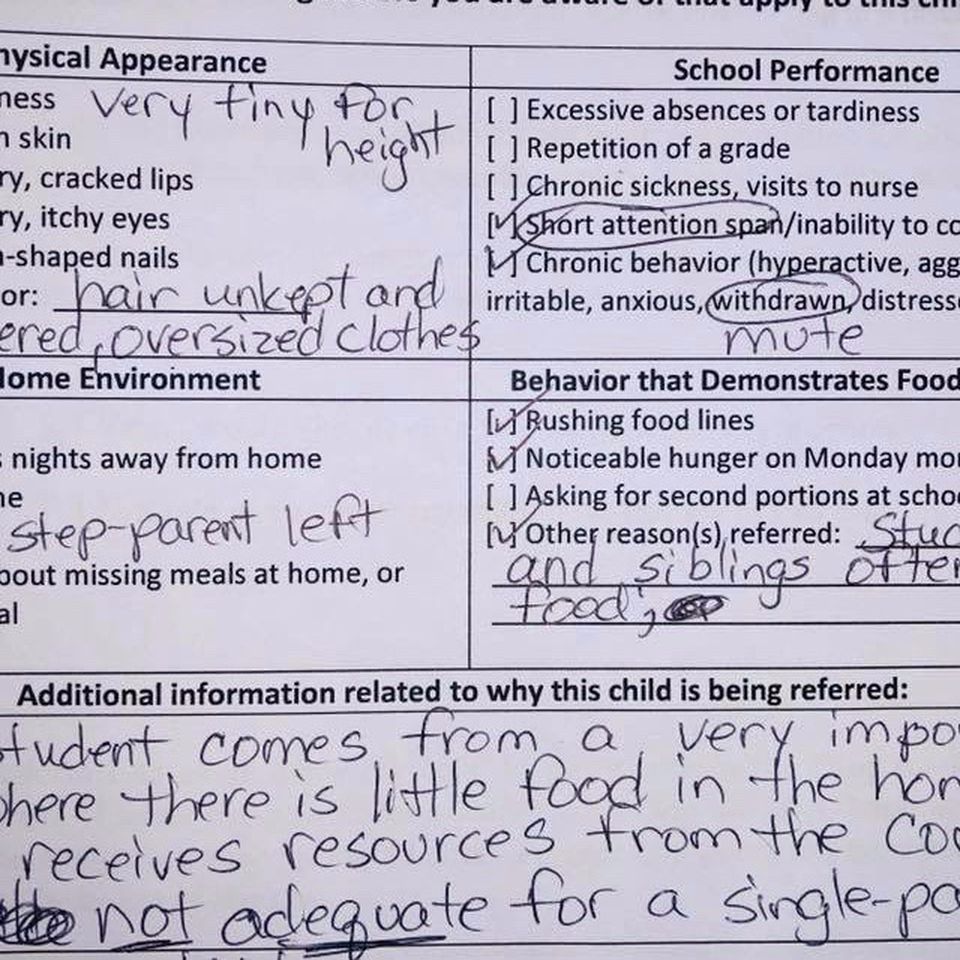 you are aware of that apply to this chi
hysical Appearance
ness very tiny for
height
n skin
ry, cracked lips
ry, itchy eyes
n-shaped nails
or: hair unkept and
ered, oversized clothes
School Performance
[ ] Excessive absences or tardiness
[ ] Repetition of a grade
[ ] Chronic sickness, visits to nurse
[✓] Short attention span/inability to co
[✓] Chronic behavior (hyperactive, agg
irritable, anxious, withdrawn, distresse
mute
Home Environment
s nights away from home
me
step-parent left
bout missing meals at home, or
al
Behavior that Demonstrates Food
[✓] Rushing food lines
[✓] Noticeable hunger on Monday mor
[ ] Asking for second portions at schoo
[✓] Other reason(s) referred: Stud
and siblings often
food;
Additional information related to why this child is being referred:
Student comes from a very impo
where there is little food in the hom
receives resources from the Cou
not adequate for a single-pa